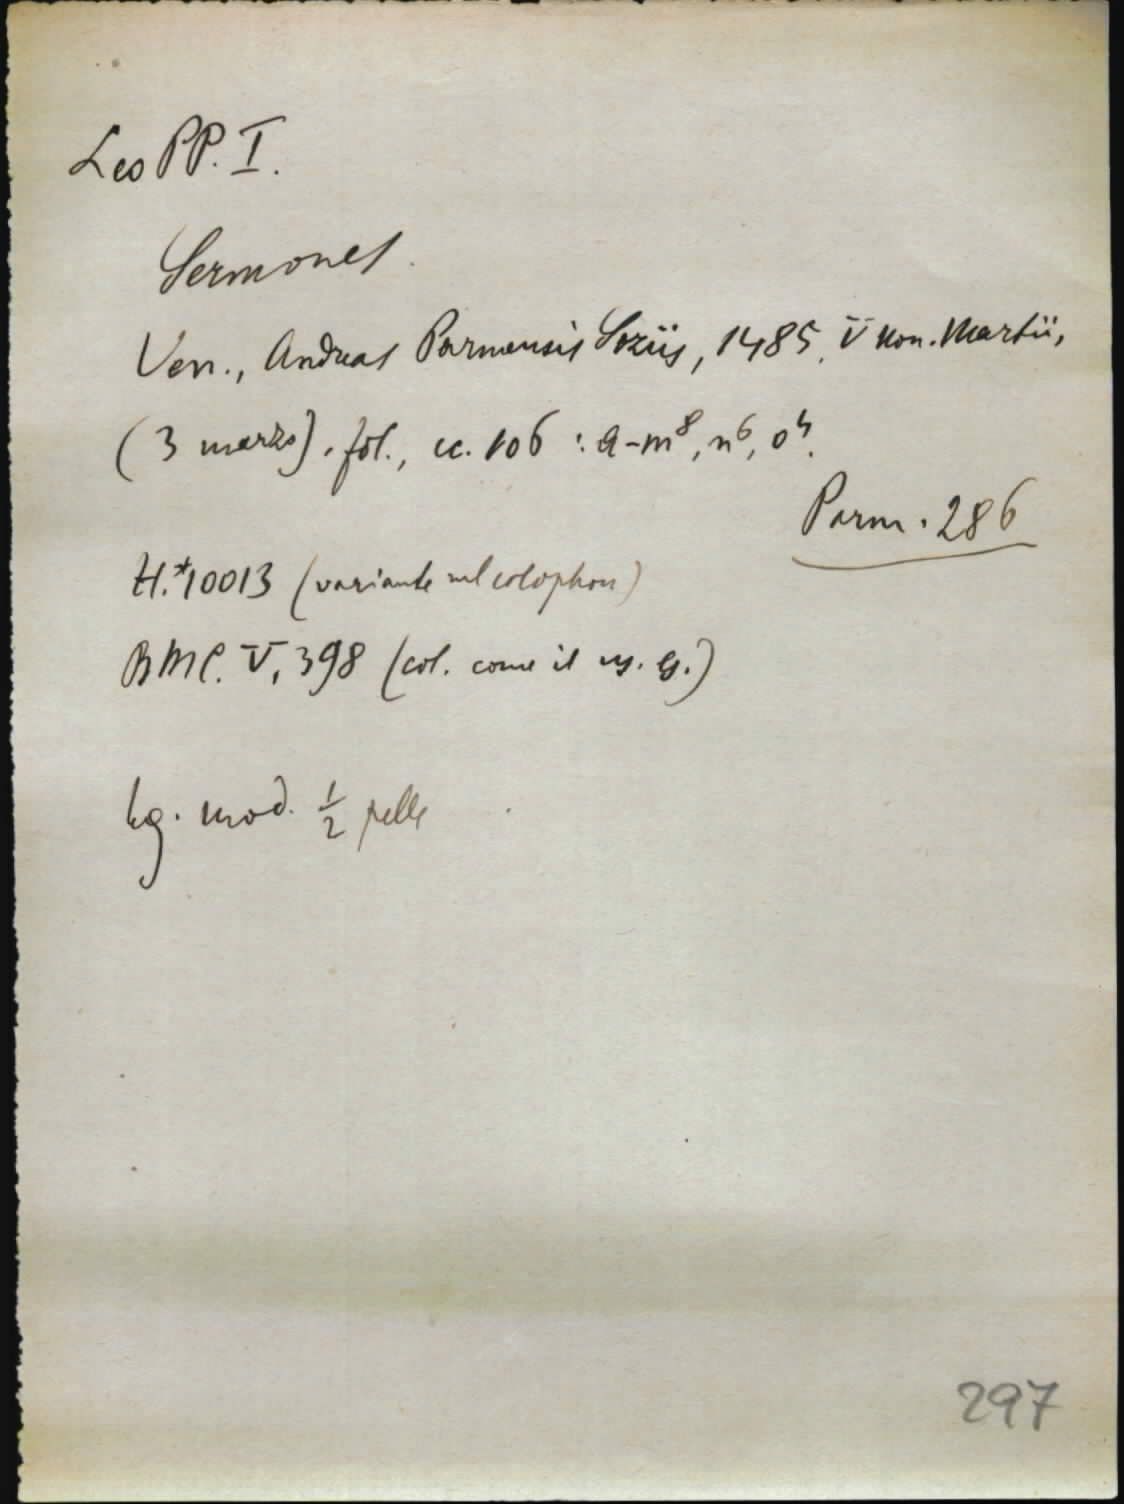 Leo PP. I.
Sermones.
Ven., Andreas Parmensis Soziis, 1485, V Non. Martii,
(3 marzo). fol., cc. 106 : a-m⁸, n⁶, o⁴.
Parm. 286
H.*10013 (variante nel colophon)
BMC. V, 398 (col. come il ns. es.)
Leg. mod. ½ pelle
297